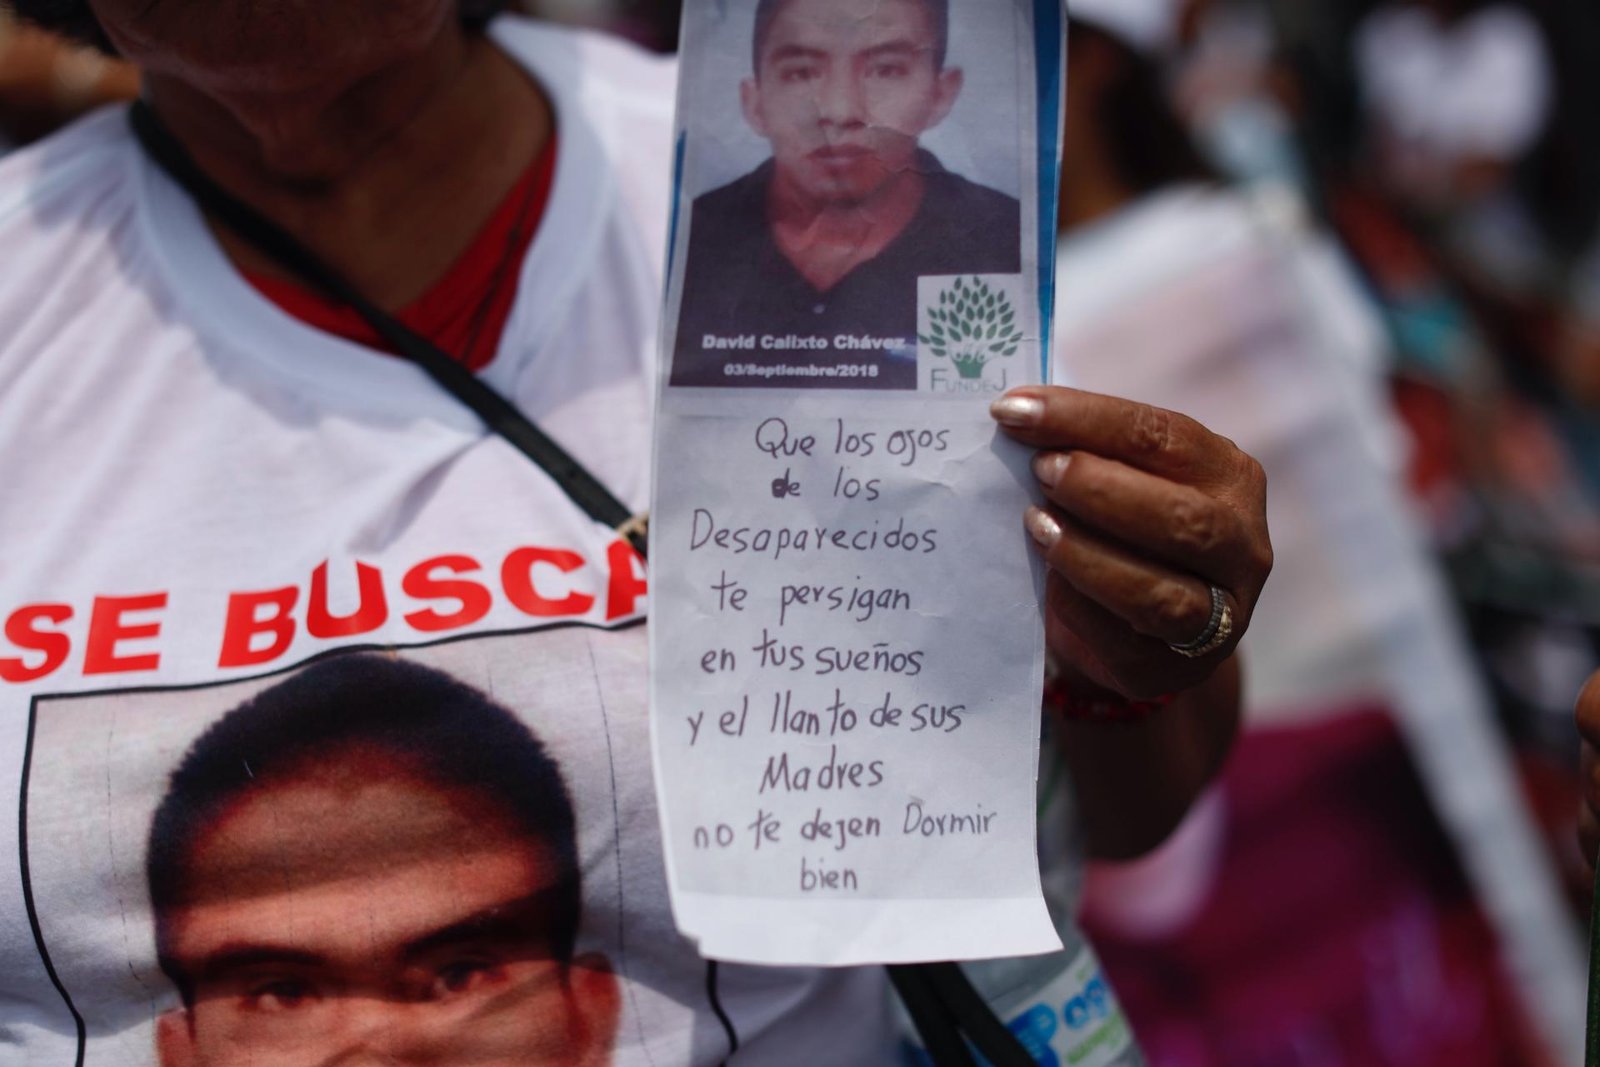 David Calixto Chávez
03/Septiembre/2018
FUNDEJ
Que los ojos
de los
Desaparecidos
te persigan
en tus sueños
y el llanto de sus
Madres
no te dejen Dormir
bien
SE BUSCA